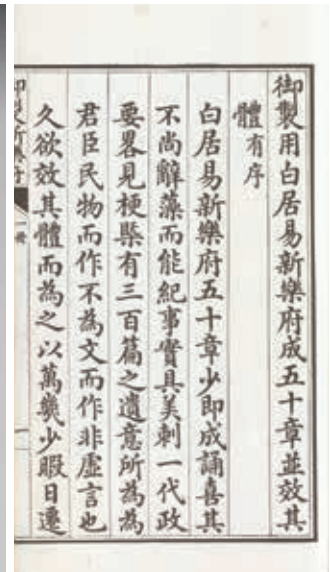 御製用白居易新樂府成五十章並效其
體有序
白居易新樂府五十章少即成誦喜其
不尚辭藻而能紀事實具美刺一代政
要畧見梗槩有三百篇之遺意所為為
君臣民物而作不為文而作非虛言也
久欲效其體而為之以萬幾少暇日遷